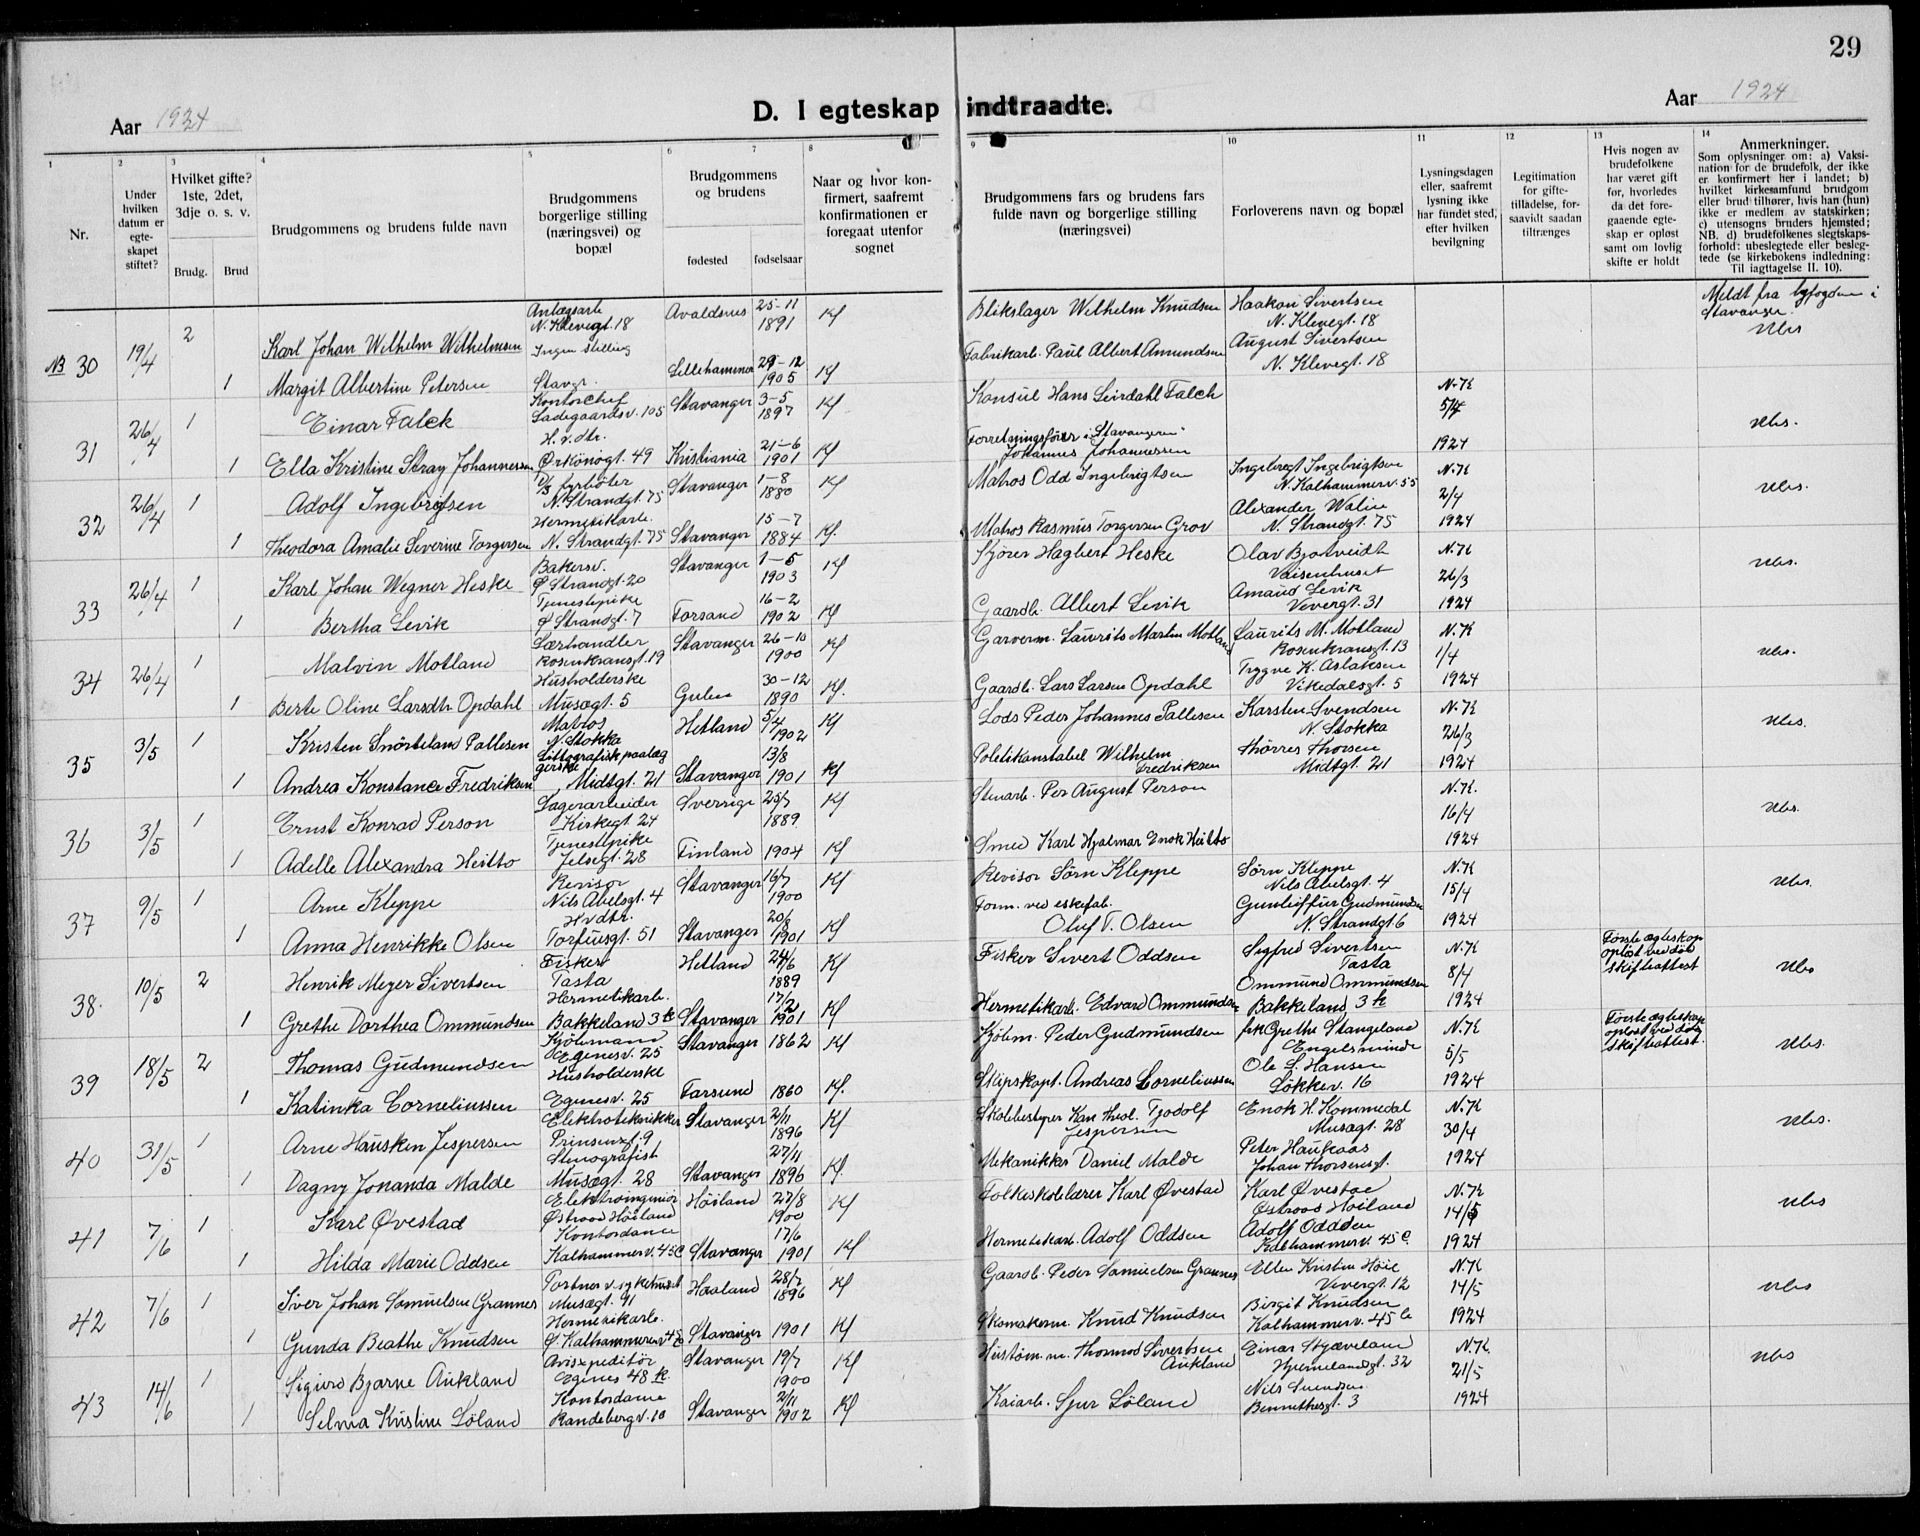 29
Aar 1924
D. I egteskap indtraadte.
Aar 1924
1 2 3 4 5 6 7 8 9 10 11 12 13 14
Nr.
Under hvilken datum er egteskapet stiftet?
Hvilket gifte? 1ste, 2det, 3dje o. s. v.
Brudg. Brud
Brudgommens og brudens fulde navn
Brudgommens borgerlige stilling (næringsvei) og bopæl
Brudgommens og brudens
fødested fødselsaar
Naar og hvor konfirmert, saafremt konfirmationen er foregaat utenfor sognet
Brudgommens fars og brudens fars fulde navn og borgerlige stilling (næringsvei)
Forloverens navn og bopæl
Lysningsdagen eller, saafremt lysning ikke har fundet sted, efter hvilken bevilgning
Legitimation for giftetilladelse, forsaavidt saadan tiltrænges
Hvis nogen av brudefolkene har været gift før, hvorledes da det foregaaende egteskap er opløst samt om lovlig skifte er holdt
Anmerkninger.
Som oplysninger om: a) Vaksination for de brudefolk, der ikke er konfirmert her i landet; b) hvilket kirkesamfund brudgom eller brud tilhører, hvis han (hun) ikke er medlem av statskirken; c) utensogns bruders hjemsted; NB. d) brudefolkenes slegtskapsforhold: ubeslegtede eller beslegtede (se kirkebokens indledning: Til iagttagelse II. 10).
NB 30 19/4 2 Karl Johan Wilhelm Wilhelmsen Anlægsarb. N. Klevegt. 18 Avaldsnes 25-11 1891 Kf Blikslager Wilhelm Knudsen Haakon Sivertsen N. Klevegt. 18 Meldt fra byfogden i Stavanger. Ubs
1 Margit Albertine Petersen Ingen stilling Stavgr. Lillehammer 29-12 1905 Kf Fabrikarb. Paul Albert Amundsen August Sivertsen N. Klevegt. 18
31 26/4 1 Einar Falck Kontorchef Ladegaardsv. 105 Stavanger 3-5 1897 Kf Konsul Hans Leirdahl Falch N.K 5/4 1924 Ubs.
1 Ella Kristine Stray Johannessen H. v. dtr. Ørkönogt. 49 Kristiania 21-6 1901 Kf Forretningsfører i "Stavangeren" Johannes Johannessen
32 26/4 1 Adolf Ingebrigtsen D/S fyrbøter N. Strandgt. 75 Stavanger 1-8 1880 Kf Matros Odd Ingebrigtsen Ingebregt Ingebrigtsen N. Kalhammerv. 55 N.K 2/4 1924 Ubs.
1 Theodora Amalie Severine Torgersen Hermetikarb. N. Strandgt. 75 Stavanger 15-7 1884 Kf. Matros Rasmus Torgersen Grov Alexander Walin N. Strandgt. 75
33 26/4 1 Karl Johan Wegner Heske Bakersv. Ø Strandgt. 20 Stavanger 1-5 1903 Kf Kjører Hagbert Heske Olav Bjotveidt Vaisenhuset N.K 26/3 1924 Ubs.
1 Bertha Levik Tjenestepike Ø Strandgt. 7 Forsand 16-2 1902 Kf Gaardb. Albert Levik Amund Levik Vevergt. 31
34 26/4 1 Malvin Motland Lærhandler Rosenkransgt. 19 Stavanger 26-10 1900 Kf Garverm. Laurits Martin Motland Laurits M. Motland Rosenkransgt. 13 N.K 1/4 1924 Ubs.
1 Berte Oline Larsdtr. Opdahl Husholderske Musægt. 5 Gulen 30-12 1890 Kf. Gaardb. Lars Larsen Opdahl Trygve K. Aslaksen Vikedalsgt. 5
35 3/5 1 Kristen Snørteland Pallesen Matros N. Stokka Hetland 5/4 1902 Kf Lods Peder Johannes Pallesen Karsten Svendsen N. Stokka N.K 26/3 1924 Ubs.
1 Andrea Konstance Fredriksen Littografisk paalæggerske Midtgt. 21 Stavanger 13/8 1901 Kf Politikonstabel Wilhelm Fredriksen Thorres Thorsen Midtgt. 21
36 3/5 1 Ernst Konrad Person Lagerarbeider Kirkegt. 24 Sverrige 25/7 1889 Kf Stenarb. Per August Person N.K. 16/4 1924 Ubs.
1 Adelle Alexandra Heitto Tjenestepike Jelsegt. 28 Finland 1904 Kf Smed Karl Hjalmar Enok Heitto
37 9/5 1 Arne Kleppe Revisor Nils Abelsgt. 4 Stavanger 16/7 1900 Kf Revisor Sørn Kleppe Sørn Kleppe Nils Abelsgt. 4 N.K 15/4 1924 Ubs.
1 Anna Henrikke Olsen H.v.dtr. Torfæusgt. 51 Stavanger 20/8 1901 Kf Form. ved eskefab. Oluf T. Olsen Gunleiffur Gudmundsen N. Strandgt. 6
38. 10/5 2 Henrik Meyer Sivertsen Fisker Tasta Hetland 24/6 1889 Kf Fisker Sivert Oddsen Sigfred Sivertsen Tasta N.K 8/4 1924 Første ægteskap opløst ved død skifteattest Ubs
1 Grethe Dorthea Ommundsen Hermetikarb. Bakkeland 3 Stavanger 17/2 1901 Kf Hermetikarb. Edvard Ommundsen Ommund Ommundsen Bakkeland 3
39 18/5 2 Thomas Gudmundsen Sjømand Egenesv. 25 Stavanger 1862 Kf Sjøm. Peder Gudmundsen frk Grethe Stangeland Engelsminde N.K 5/5 1924 Første ægteskap opløst ved død skifteattest. Ubs.
1 Katinka Corneliussen Husholderske Egenesv. 25 Farsund 1860 Kf. Skipskapt. Andreas Corneliussen Ole L. Hansen Løkkev. 16
40 31/5 1 Arne Hausken Jespersen Elektrotekniker Prinsensgt. 9 Stavanger 2/11 1896 Kf Skolebestyrer Kan. theol. Tjodolf Jespersen Enok H. Hommedal Musægt. 28 N.K 30/4 1924 Ubs.
1 Dagny Johanda Malde Stenografist Musægt. 28 Stavanger 27/11 1896 Kf. Mekaniker Daniel Malde Peter Haugaas Johan Thorsensgt.
41 7/6 1 Karl Øvestad Elektroingeniør Østraad Høiland Høiland 27/8 1900 Kf Folkeskolelærer Karl Øvestad Karl Øvestad Østraad Høiland N.K 14/5 1924 Ubs
1 Hilda Marie Oddsen Kontordame Kalhammerv. 45 C Stavanger 17/6 1901 Kf Hermetikarb. Adolf Oddsen Adolf Oddsen Kalhammerv. 45 C.
42 7/6 1 Iver Johan Samuelsen Grannes Portner v. sykehuset Musægt. 91 Haaland 28/7 1896 Kf Gaardb. Peder Samuelsen Grannes Ellen Kristin Høie Vevergt. 12 N.K 14/5 1924 Ubs
1 Gunda Beathe Knudsen Hermetikarb. Ø. Kalhammerv. 45 Stavanger 1901 Kf Skomakerm. Knud Knudsen Birgit Knudsen Kalhammerv. 45
43 14/6 1 Sigurd Bjarne Aukland Avisexpeditør Egenes 48 Stavanger 19/7 1900 Kf Hustøm.m. Thormod Sivertsen Aukland Einar Skjæveland Hjelmelandsgt. 32 N.K. 21/5 1924 Ubs
1 Selma Kristine Løland Kontordame Randebergv. 10 Stavanger 2/11 1902 Kf Kaiarb. Sjur Løland Nils Svendsen Bennethesgt. 3